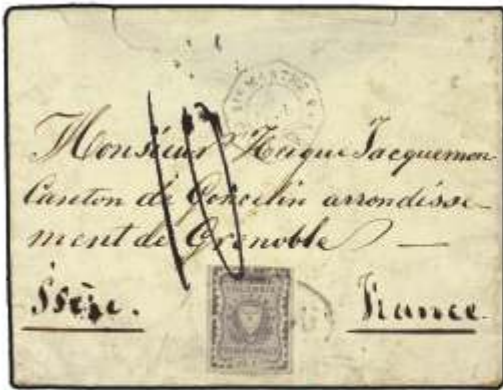 10
Monsieur Hugue Jacquemon
Canton de Goncelin arrondisse
ment de Grenoble —
Isère. France